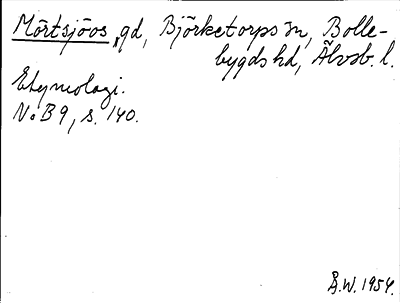 Mörtsjöos, gd, Björketorps sn, Bolle-
bygds hd, Älvsb. l.
Etymologi.
NoB 9, s. 140.
Å.W. 1954.